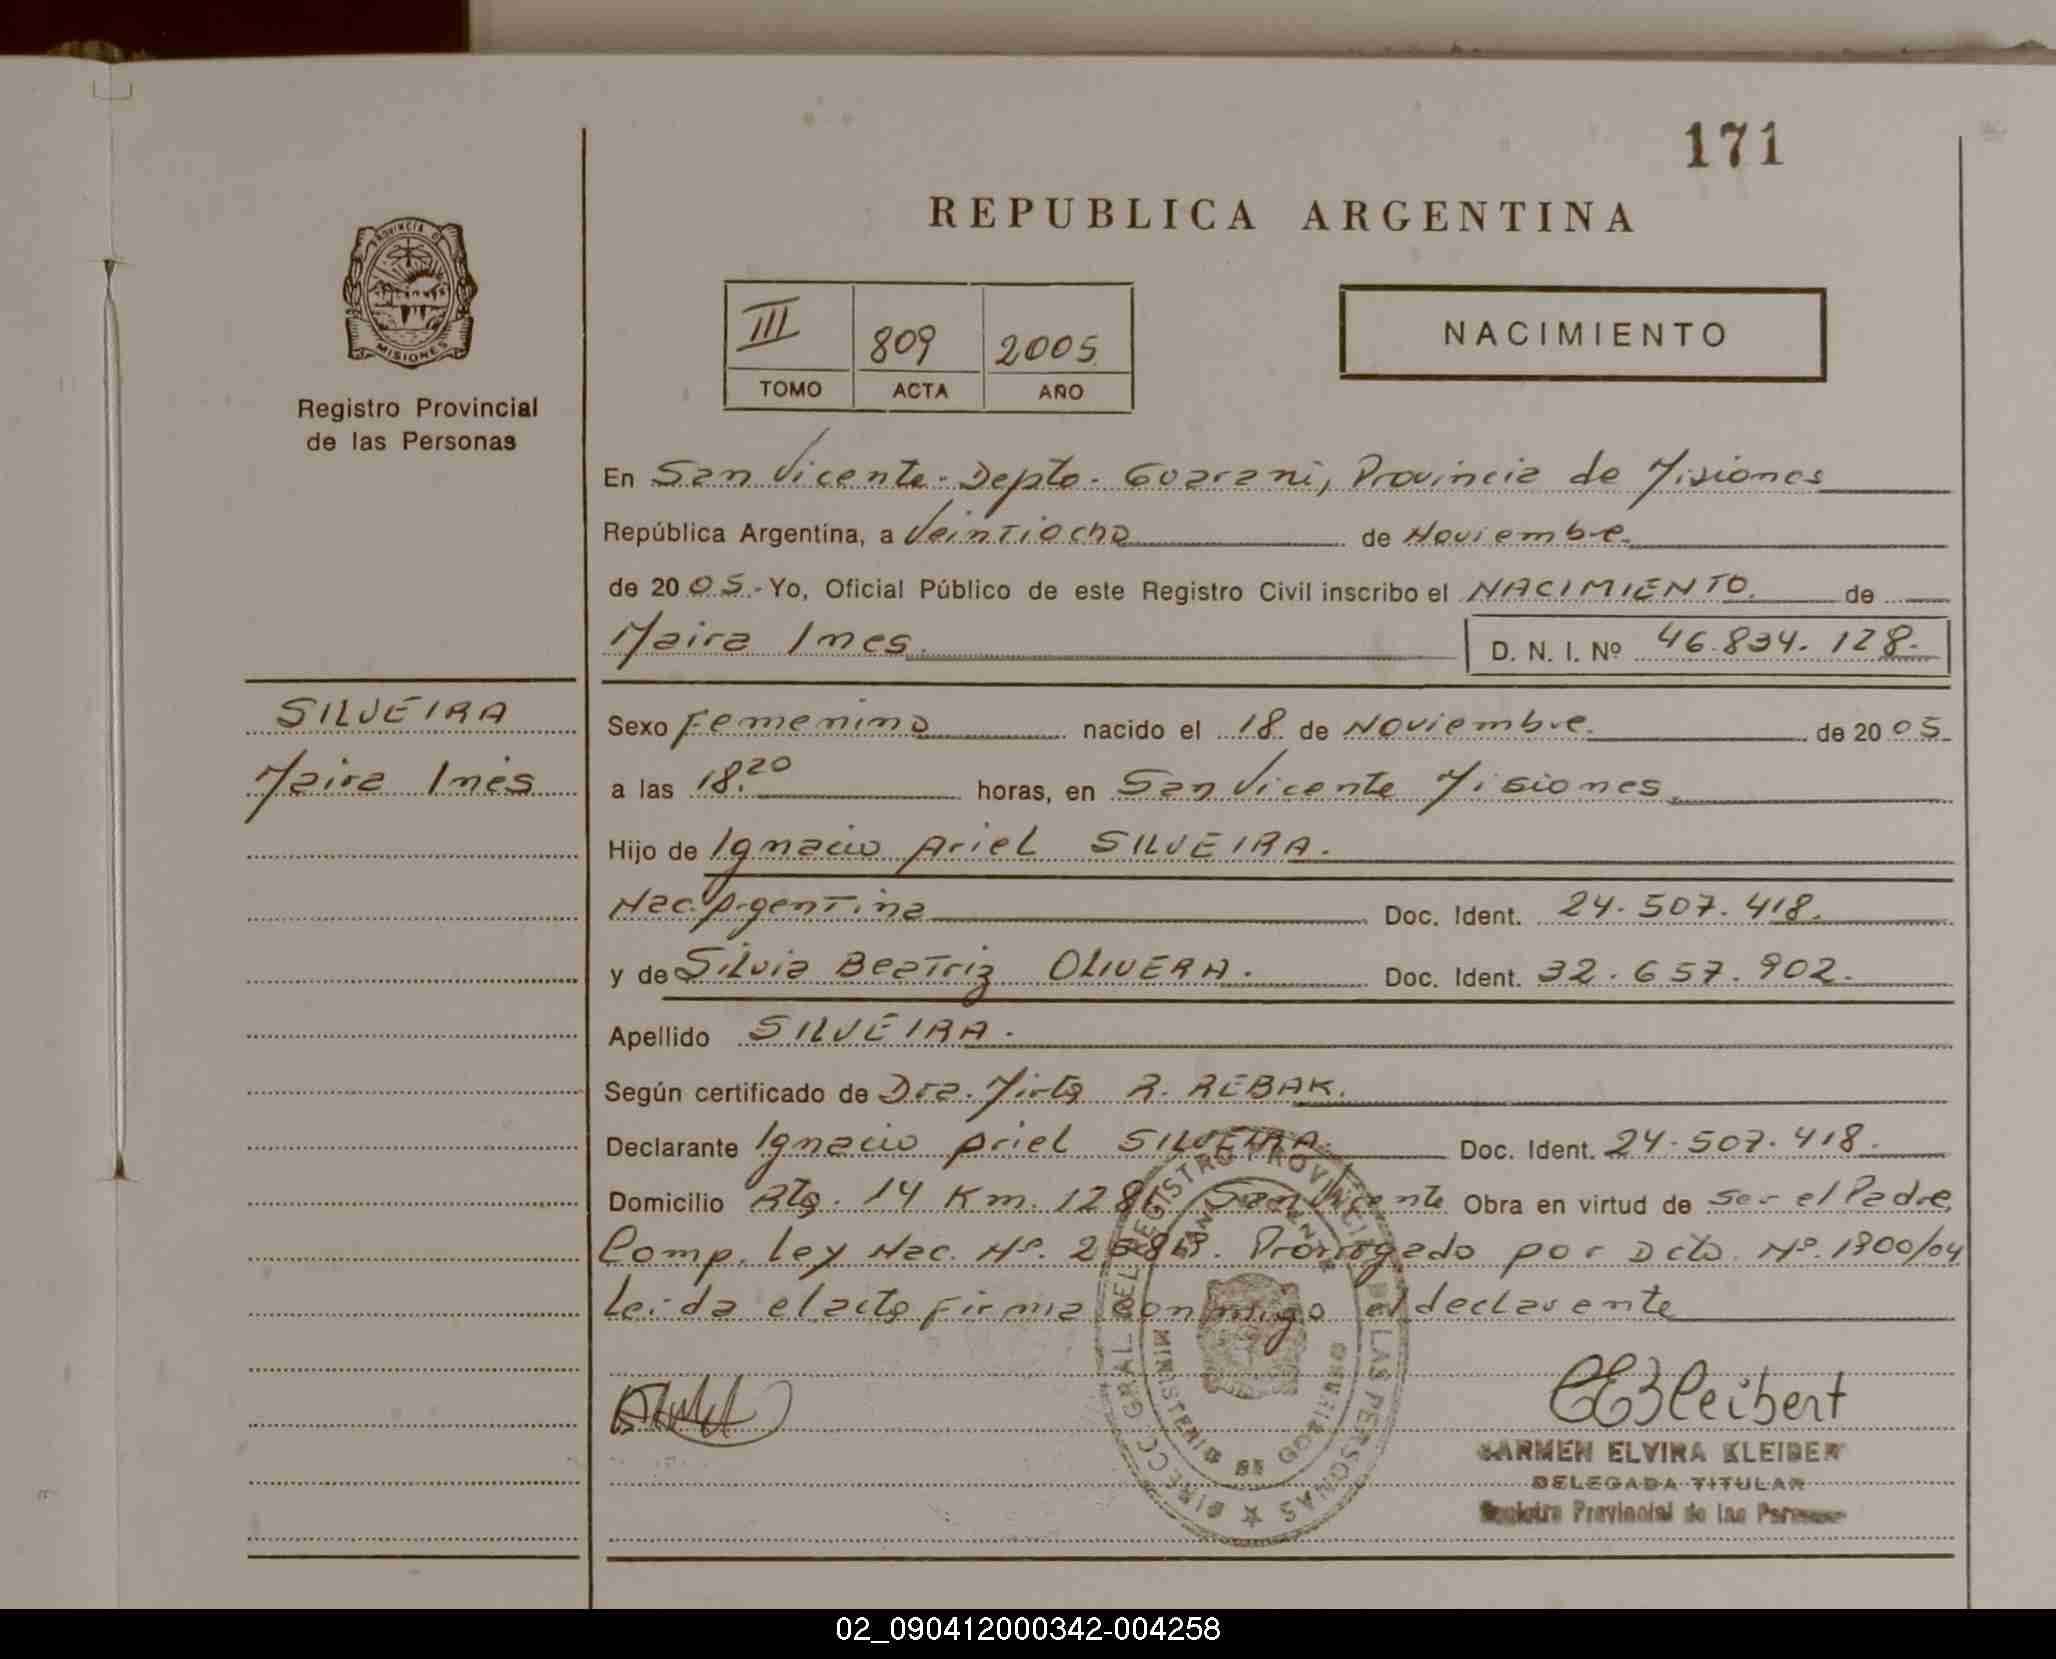 171
REPUBLICA ARGENTINA
PROVINCIA D
MISIONES
Registro Provincial
de las Personas
III 809 2005
TOMO ACTA AÑO
NACIMIENTO
En San Vicente - Depto - Guarani, Provincia de Misiones
República Argentina, a Veintiocho de Noviembre
de 2005.- Yo, Oficial Público de este Registro Civil inscribo el NACIMIENTO. de
Maira Ines. D. N. I. Nº 46.834.128.-
SILVEIRA
Maira Inés
Sexo Femenino nacido el 18 de Noviembre de 2005
a las 18.20 horas, en San Vicente Misiones
Hijo de Ignacio Ariel SILVEIRA.
Nac. Argentina Doc. Ident. 24.507.418.
y de Silvia Beatriz OLIVERA. Doc. Ident. 32.657.902.
Apellido SILVEIRA.
Según certificado de Dra. Mirta R. REBAK.
Declarante Ignacio Ariel SILVEIRA. Doc. Ident. 24.507.418.
Domicilio Rta. 14 Km. 128 San Vicente Obra en virtud de ser el Padre
Comp. Ley Nac. Nº. Prorrogado por Dcto. Nº. 1900/04
Leida el acta firma conmigo el declarante
DIRECC GRAL DEL REGISTRO PROVINCIAL DE LAS PERSONAS
MINISTERIO DE GOBIERNO
CEKleibert
CARMEN ELVIRA KLEIBER
DELEGADA TITULAR
Registro Provincial de las Personas
02_090412000342-004258